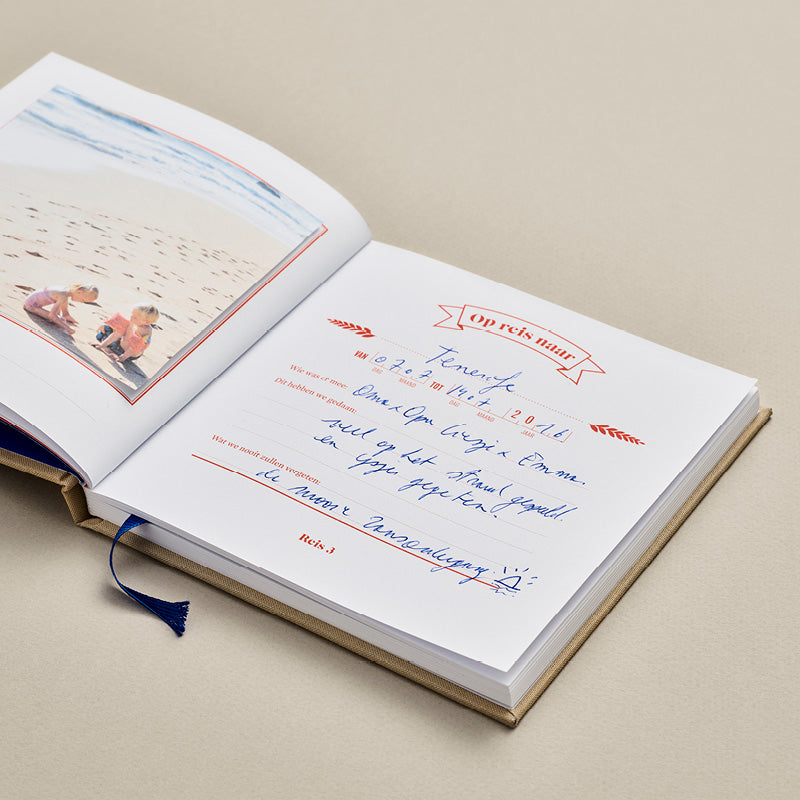 Op reis naar
Tenerife
VAN 0707 TOT 1407 2016
DAG MAAND DAG MAAND JAAR
Wie was er mee: Oma & Opa Liezzie & Emma.
Dit hebben we gedaan: veel op het strand gespeeld.
en ijsjes gegeten.
Wat we nooit zullen vergeten:
de mooie zonsondergang.
Reis 3